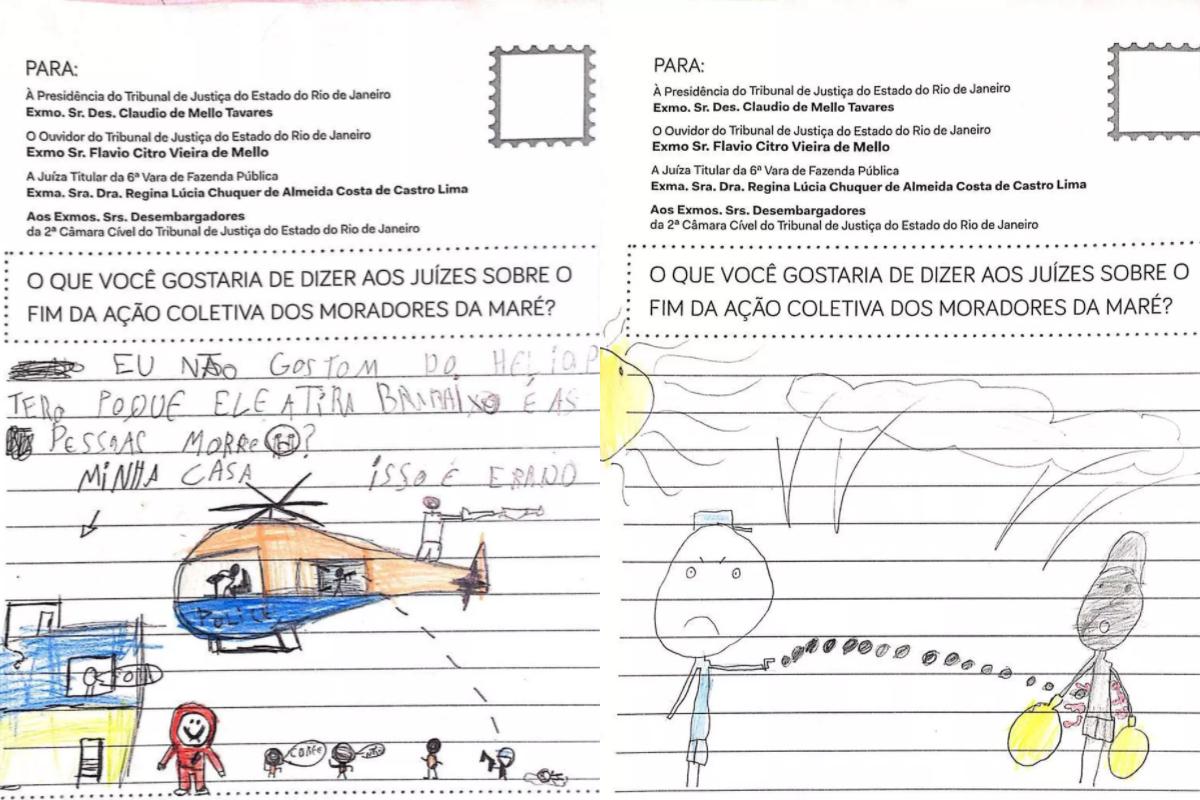 PARA:
À Presidência do Tribunal de Justiça do Estado do Rio de Janeiro
Exmo. Sr. Des. Claudio de Mello Tavares
O Ouvidor do Tribunal de Justiça do Estado do Rio de Janeiro
Exmo Sr. Flavio Citro Vieira de Mello
A Juíza Titular da 6ª Vara de Fazenda Pública
Exma. Sra. Dra. Regina Lúcia Chuquer de Almeida Costa de Castro Lima
Aos Exmos. Srs. Desembargadores
da 2ª Câmara Cível do Tribunal de Justiça do Estado do Rio de Janeiro
O QUE VOCÊ GOSTARIA DE DIZER AOS JUÍZES SOBRE O
FIM DA AÇÃO COLETIVA DOS MORADORES DA MARÉ?
EU NÃO GOSTOM DO HELIOP
TERO POQUE ELE ATIRA É AS
PESSOAS MORRE ?
MINHA CASA ISSO É ERADO
POLICE
CORRE
PARA:
À Presidência do Tribunal de Justiça do Estado do Rio de Janeiro
Exmo. Sr. Des. Claudio de Mello Tavares
O Ouvidor do Tribunal de Justiça do Estado do Rio de Janeiro
Exmo Sr. Flavio Citro Vieira de Mello
A Juíza Titular da 6ª Vara de Fazenda Pública
Exma. Sra. Dra. Regina Lúcia Chuquer de Almeida Costa de Castro Lima
Aos Exmos. Srs. Desembargadores
da 2ª Câmara Cível do Tribunal de Justiça do Estado do Rio de Janeiro
O QUE VOCÊ GOSTARIA DE DIZER AOS JUÍZES SOBRE O
FIM DA AÇÃO COLETIVA DOS MORADORES DA MARÉ?